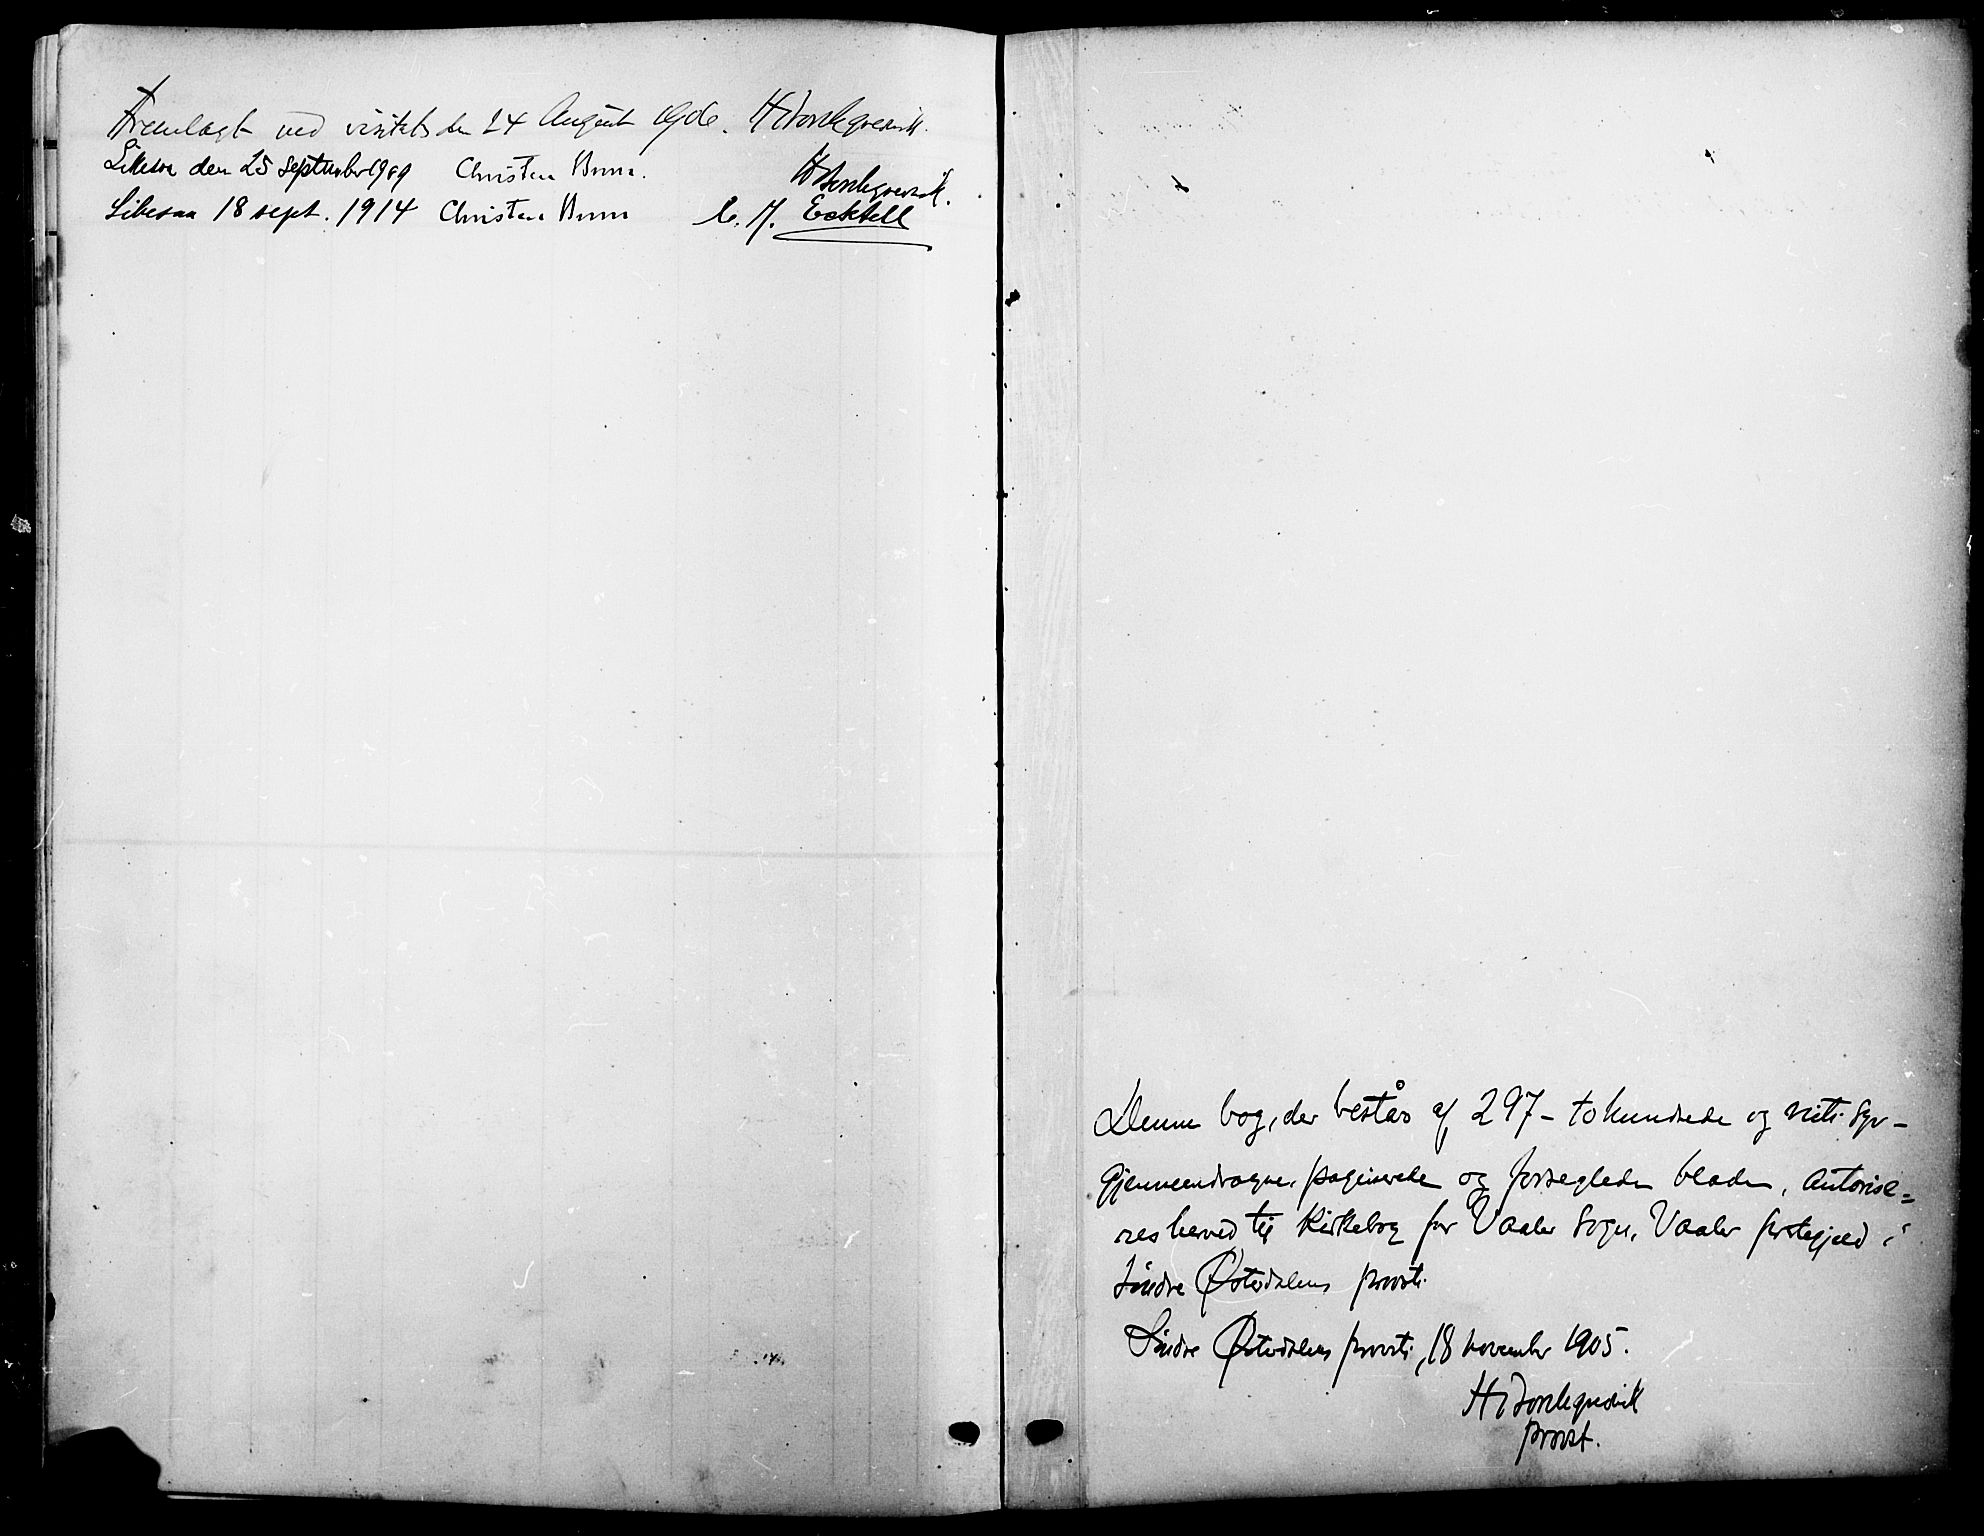 Fremlagt ved visitats den 24 August 1906. H Torkgvedvik.
Likesaa den 25 september 1909 Christen Brun.
Likesaa 18 sept. 1914 Christen Brun C. J. Eckhell
Denne bog, der består af 297 - tohundrede og nitti syv -
gjennemdragne, paginerede og forseglede blade, autorise=
res herved til Kirkebog for Vaaler Sogn, Vaaler præstegjæld i
Søndre Østerdalens provsti
Søndre Østerdalens provsti, 18 november 1905.
provst.